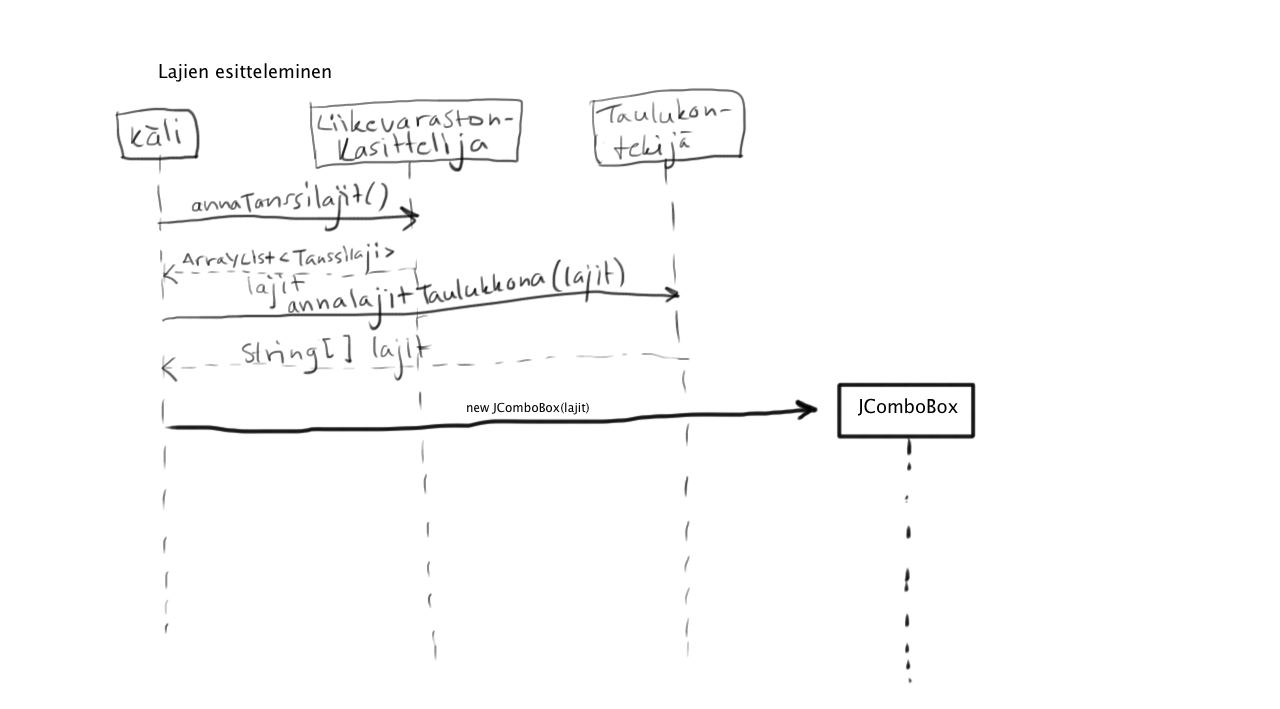 Lajien esitteleminen
käli
Liikevaraston-
käsittelijä
Taulukon-
tekijä
annaTanssilajit()
ArrayList<Tanssilaji>
lajit
annalajitTaulukkona(lajit)
String[] lajit
new JComboBox(lajit)
JComboBox